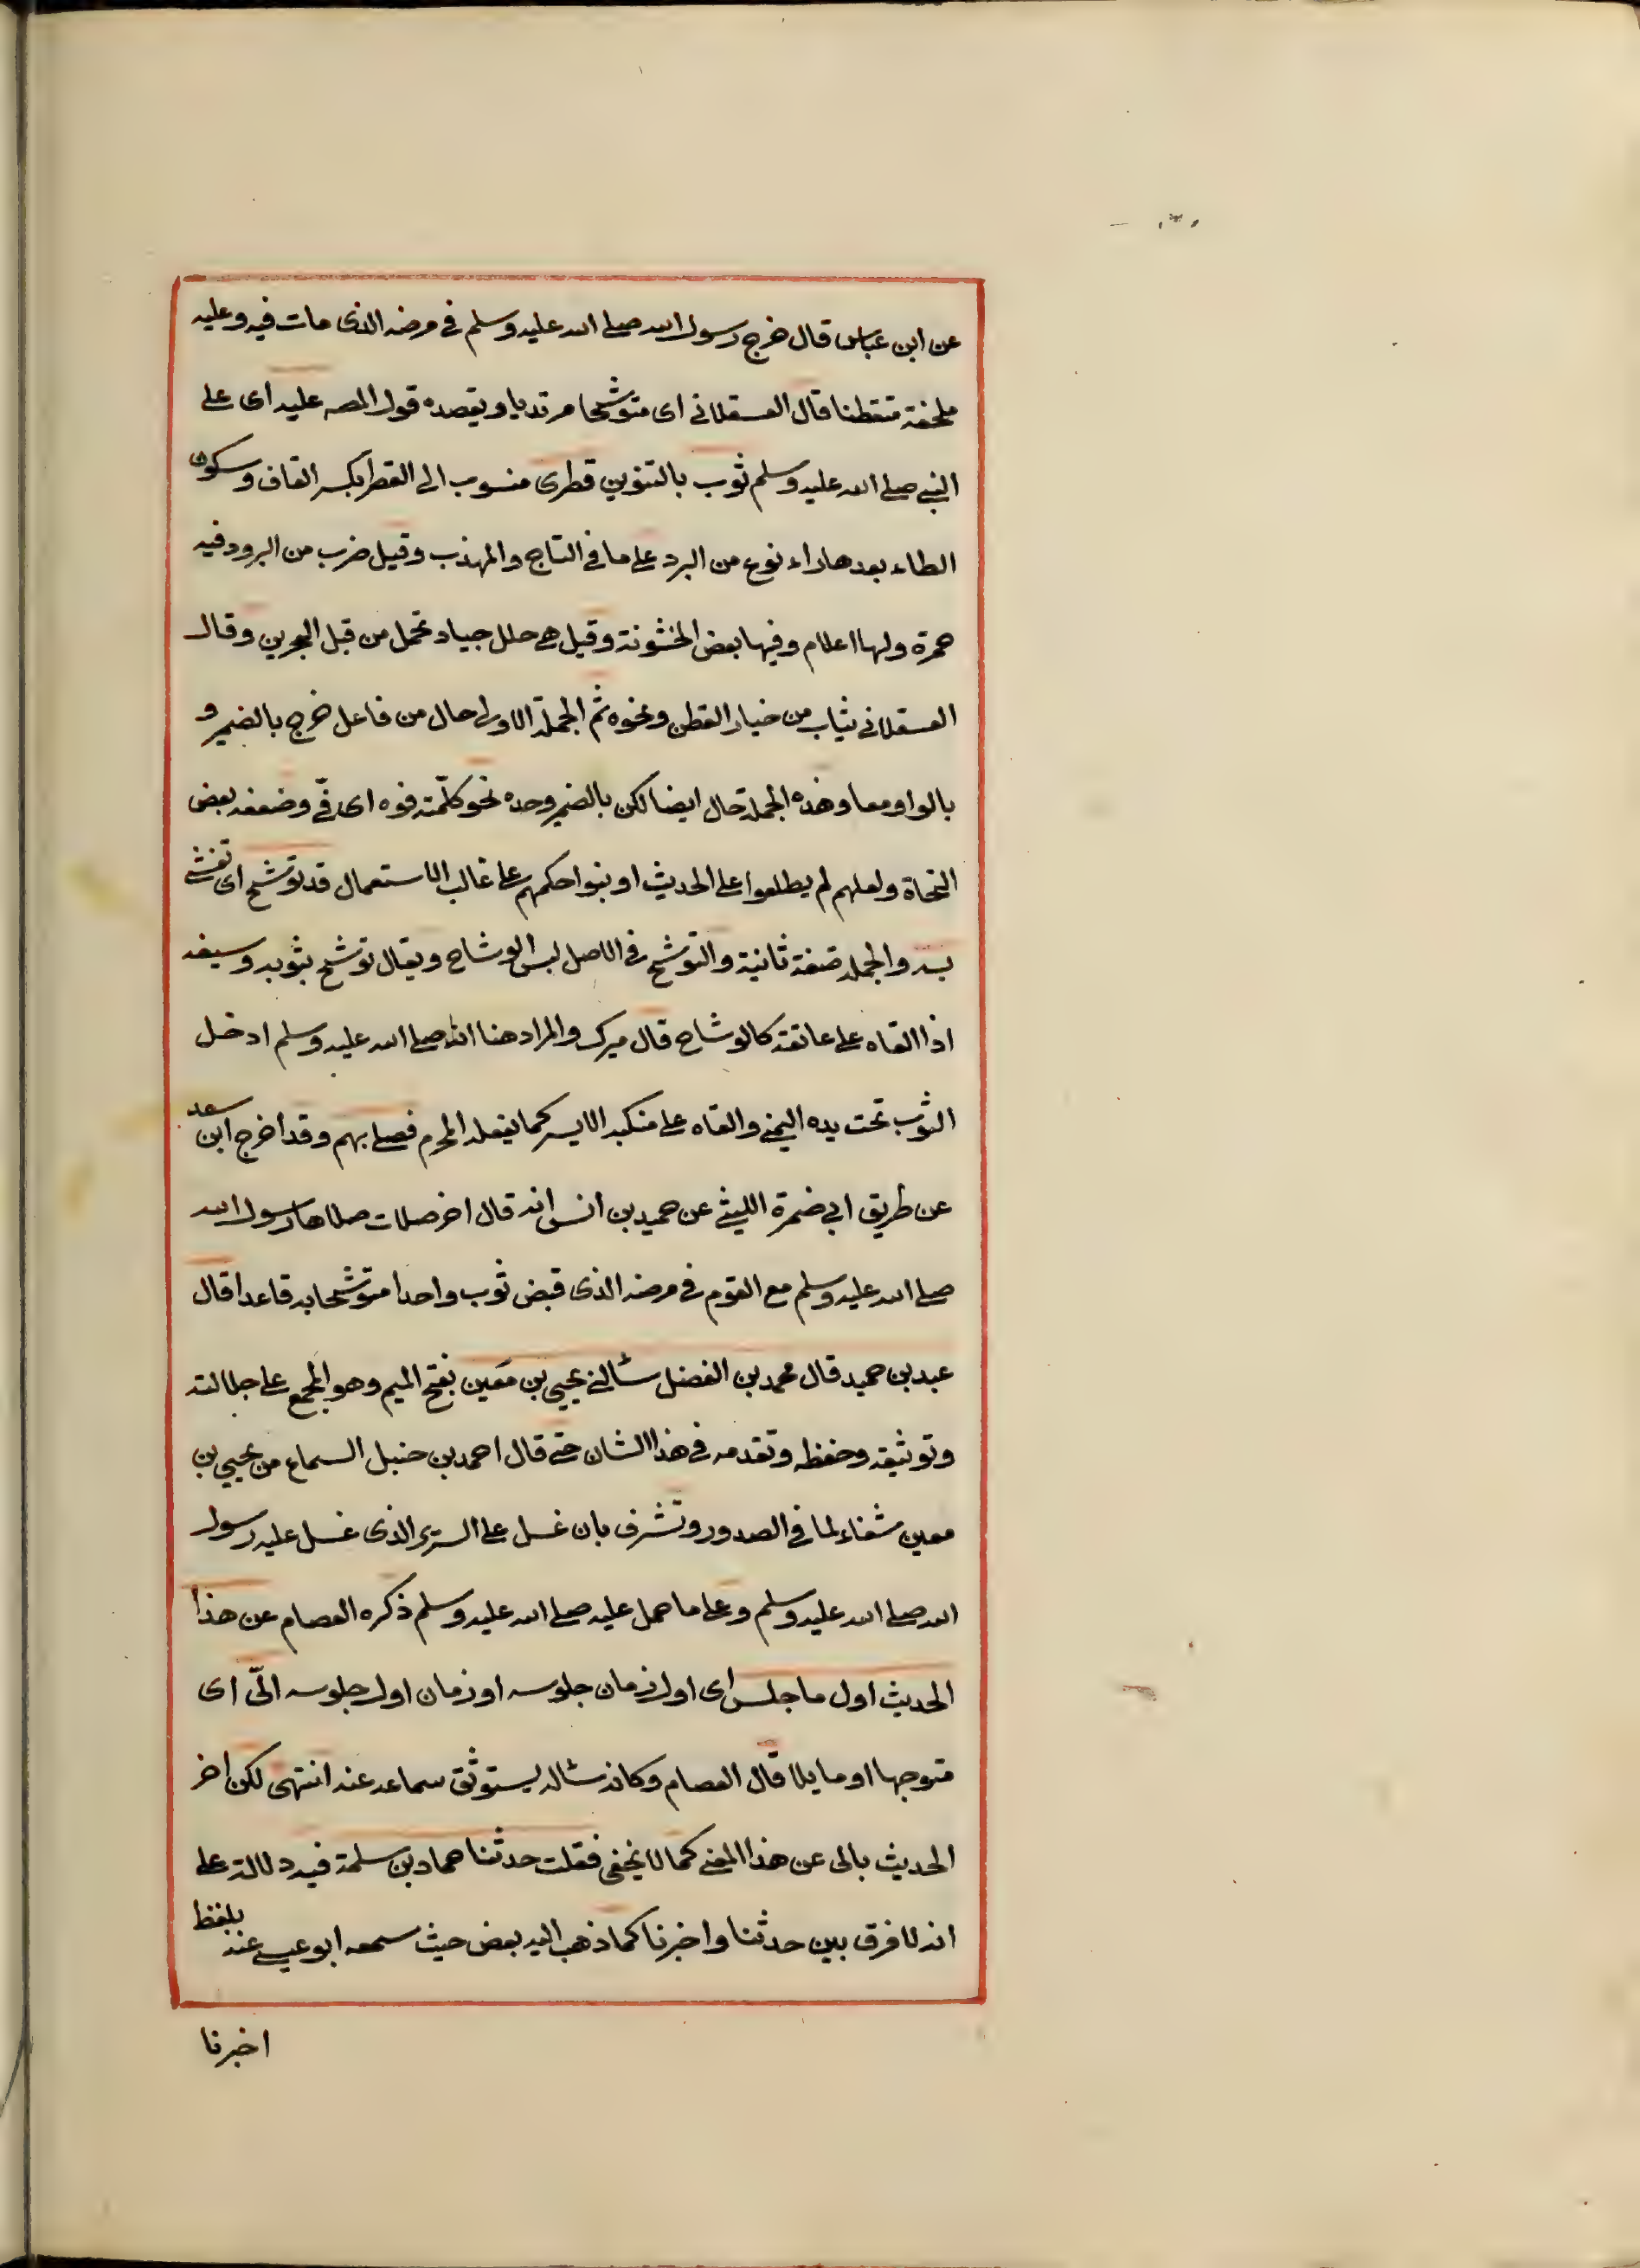 عن ابن عباس قال خرج رسول الله صلى الله عليه وسلم في مرضه الذى مات فيه وعليه
ملحفة متقطنا قال العسقلانى اى متوشحا مرتديا ويقصده قول المصه عليه اى على
النبى صلى الله عليه وسلم ثوب بالتنوين قطرى منسوب الى القطر بكسر القاف وسكون
الطاء بعدها راء نوع من البرد على ما فى التاج والمهذب وقيل ضرب من البرود فيه
حمرة ولها اعلام وفيها بعض الخشونة وقيل هى حلل جياد تحمل من قبل البحرين وقال
العسقلانى ثياب من خيار القطن ونحوه ثم الجملة الاولى حال من فاعل خرج بالضمير و
بالواو معا وهذه الجملة حال ايضا لكن بالضمير وحده نحو كلمته فوه اى فىّ وضعفه بعض
النحاة ولعلهم لم يطلعوا على الحديث او بنوا حكمهم على غالب الاستعمال قد توشح اى تغشى
به والجملة صفة ثانية والتوشح فى الاصل لبس الوشاح ويقال توشح بثوبه وسيفه
اذا القاه على عاتقه كالوشاح قال ميرك والمراد هنا انه صلى الله عليه وسلم ادخل
الثوب تحت يده اليمنى والقاه على منكبه الايسر كما يفعله المحرم فصلى بهم وقد اخرج ابن سعد
عن طريق ابى ضمرة الليثى عن حميد بن انس انه قال اخر صلات صلاها رسول الله
صلى الله عليه وسلم مع القوم فى مرضه الذى قبض ثوب واحدا متوشحا به قاعدا قال
عبد بن حميد قال محمد بن الفضل سألنى يحيى بن مَعين بفتح الميم وهو المجمع على جلالته
وتوثيقه وحفظه وتقدمه فى هذا الشان حتى قال احمد بن حنبل السماع من يحيى بن
معين شفاء لما فى الصدور وتشرف بان غسل على السرير الذى غسل عليه رسول
الله صلى الله عليه وسلم وعلى ما حمل عليه صلى الله عليه وسلم ذكره العصام عن هذا
الحديث اول ما جلس اى اول زمان جلوسه او زمان اول جلوسه الىّ اى
متوجها او مايلا قال العصام وكانه سأله ليستوثق سماعه عنه انتهى لكن اخر
الحديث يابى عن هذا المعنى كما لا يخفى فقلت حدثنا حماد بن سلمة فيه دلالة على
انه لا فرق بين حدثنا واخبرنا كما ذهب اليه بعض حيث سمعه ابو عيسى عنه بلفظ
اخبرنا